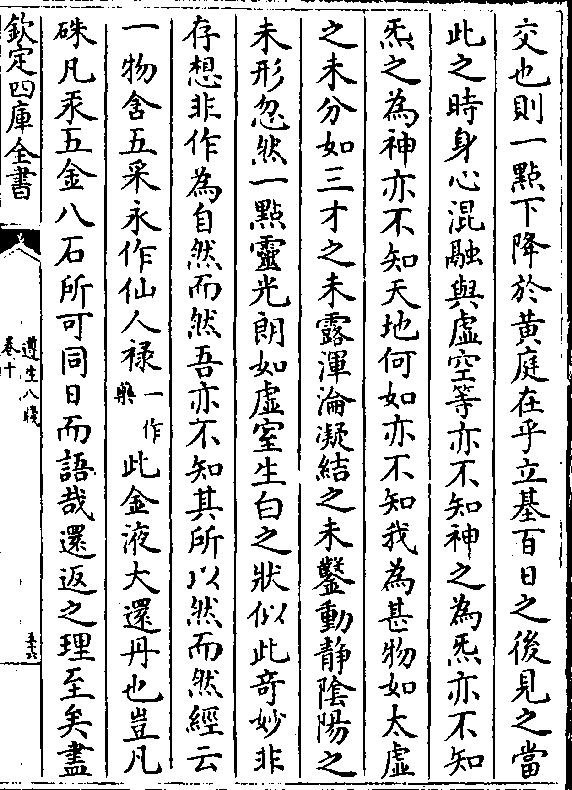 交也則一點下降於黄庭在乎立基百日之後見之當
此之時身心混融與虛空等亦不知神之為炁亦不知
炁之為神亦不知天地何如亦不知我為甚物如太虛
之未分如三才之未露渾淪凝結之未鑿動静隂陽之
未形忽然一點靈光朗如虛室生白之狀似此竒妙非
存想非作為自然而然吾亦不知其所以然而然經云
一物含五采永作仙人禄一作藥此金液大還丹也豈凡
硃凡汞五金八石所可同日而語哉還返之理至矣盡
欽定四庫全書
遵生八牋
卷十